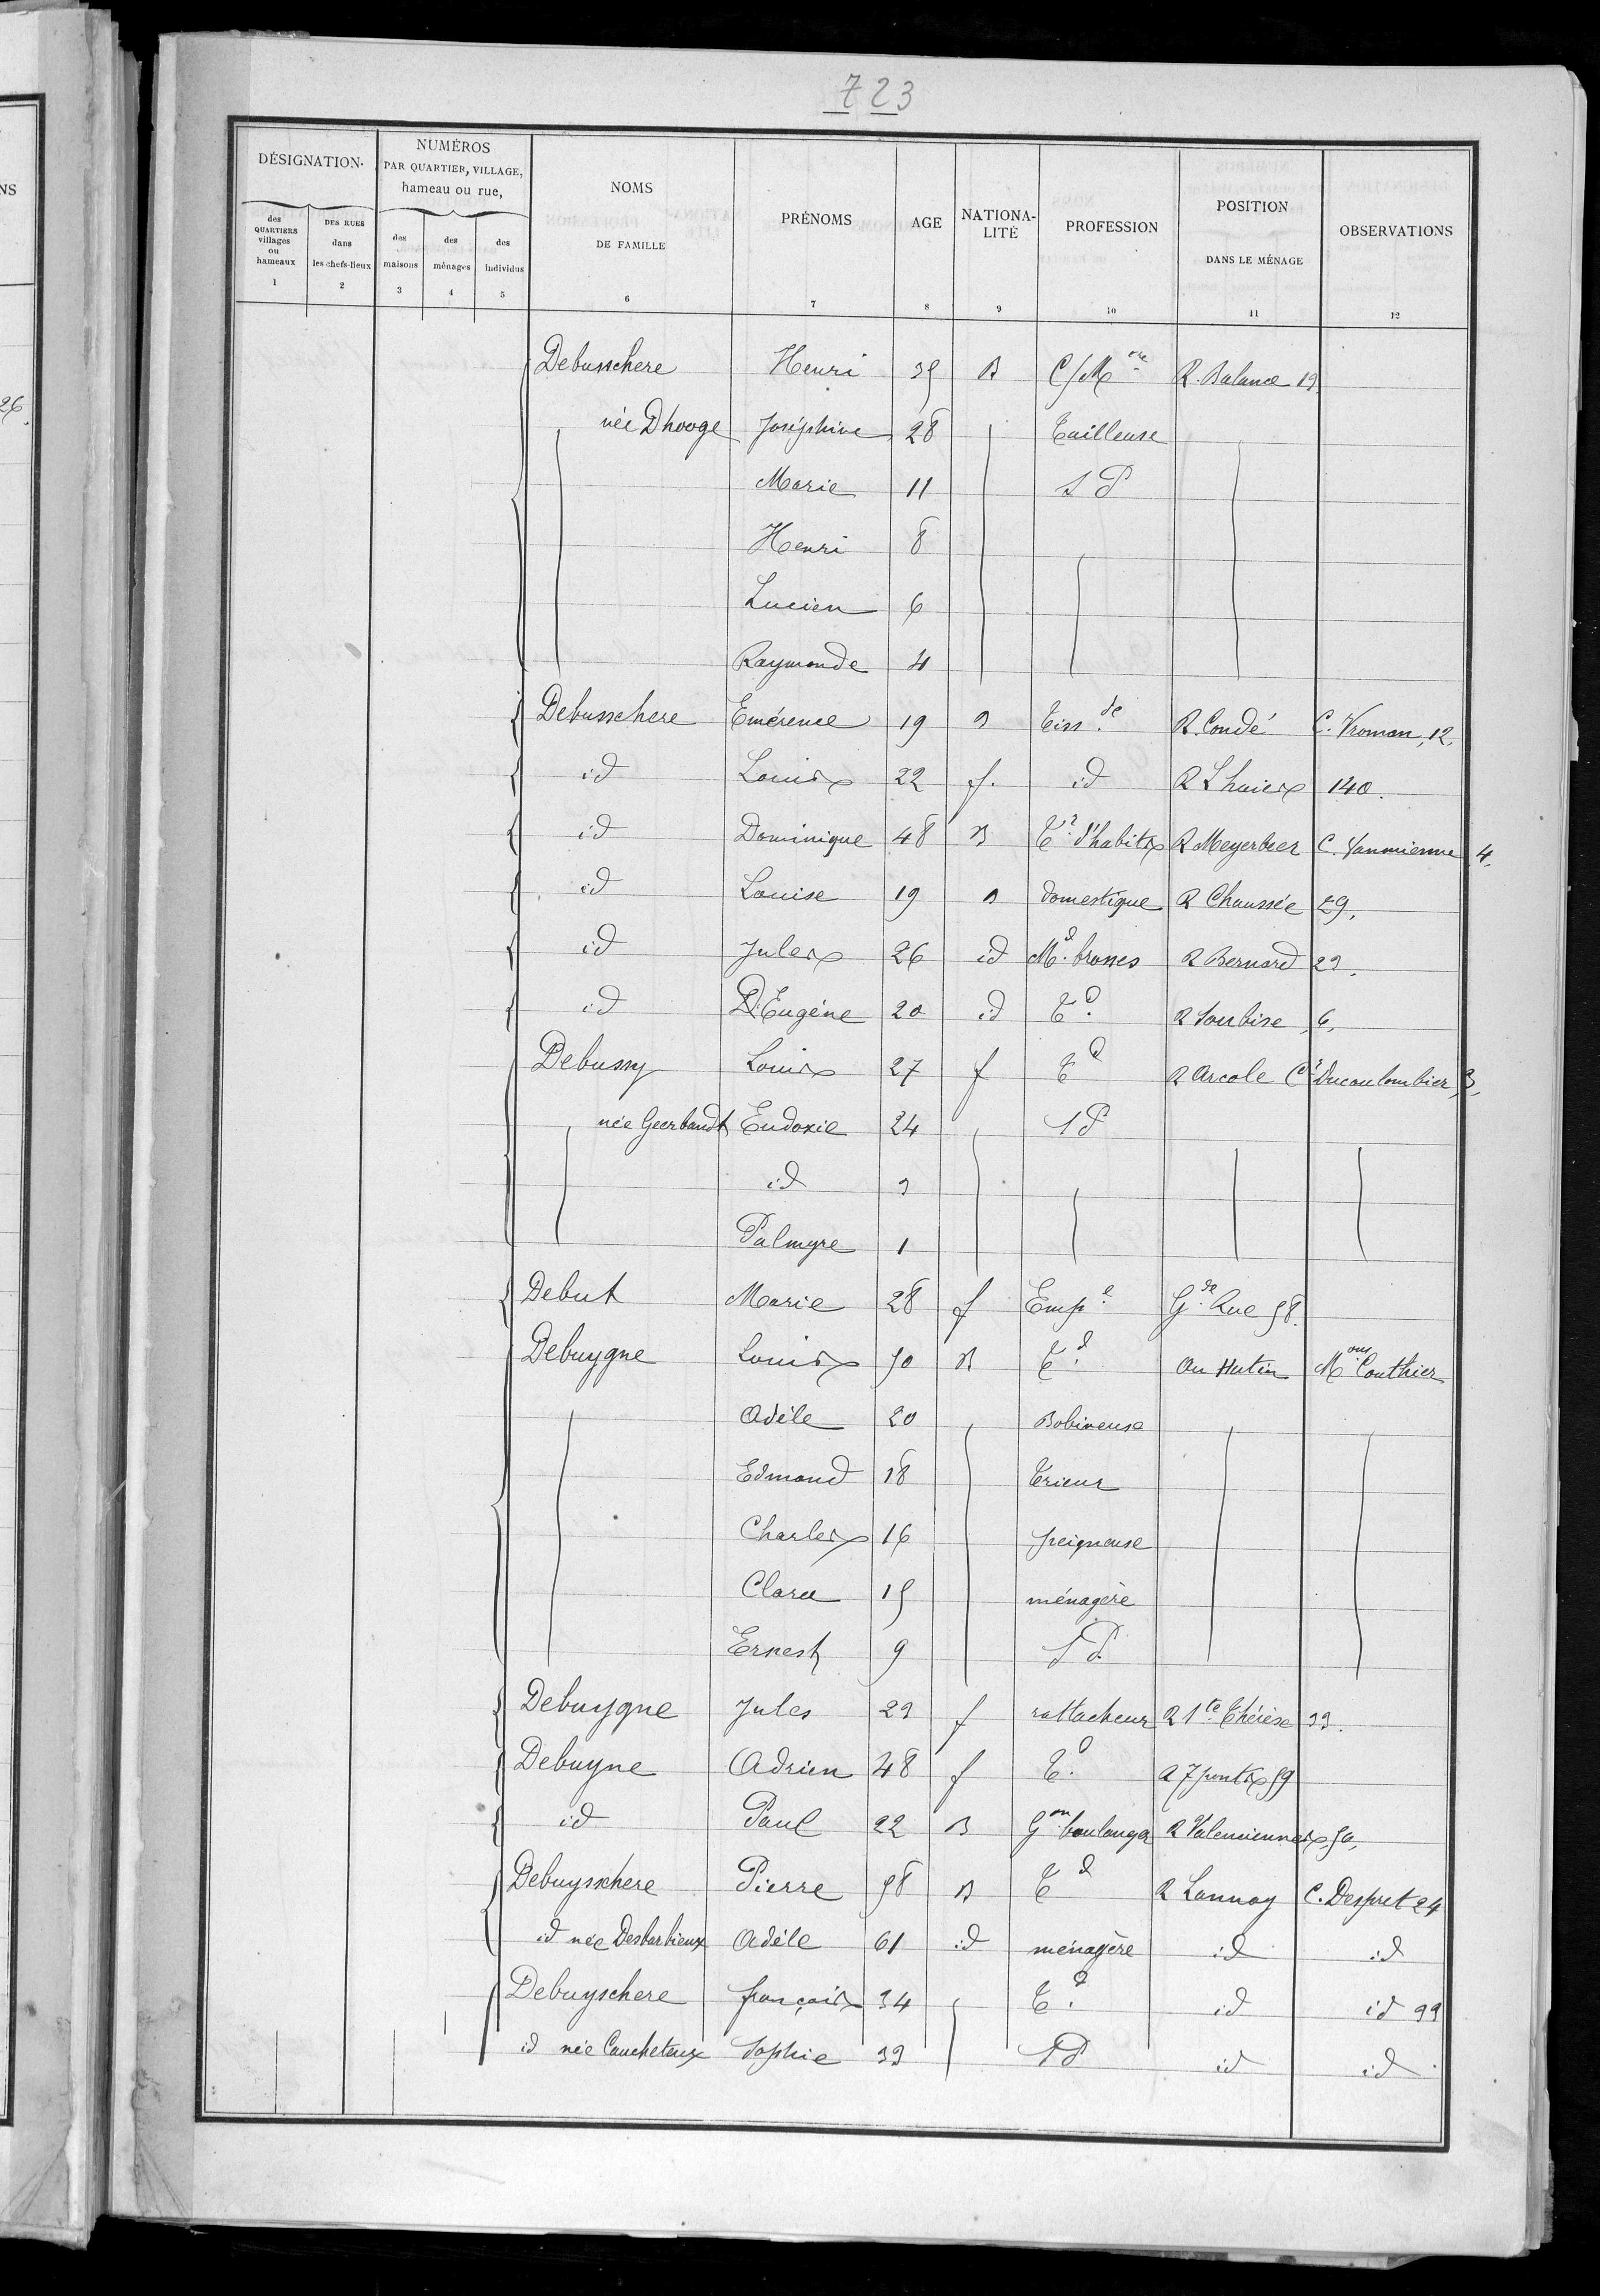 723
DÉSIGNATION
NUMÉROS PAR QUARTIER, VILLAGE, hameau ou rue,
NOMS DE FAMILLE
PRÉNOMS
AGE
NATIONALITÉ
PROFESSION
POSITION DANS LE MÉNAGE
OBSERVATIONS
des QUARTIERS villages ou hameaux
DES RUES dans les chefs-lieux
des maisons
des ménages
des individus
1 2 3 4 5 6 7 8 9 10 11 12
NS
26.
Debusschere Henri 35 B C/Mre R. Balance 19
née Dhooge Joséphine 28 Tailleuse
Marie 11 S P
Henri 8
Lucien 6
Raymonde 4
Debusschere Emérence 19 B Tissde R. Condé C. Vroman, 12.
id Louis 22 f. id R Lhuier 140.
id Dominique 48 B Tr d'habits R Meyerbeer C. 4.
id Louise 19 B domestique R Chaussée 29.
id Jules 26 id Md brosses R Bernard 23.
id Eugène 20 id Td R Soubise 6.
Debussy Louis 27 f Td R Arcole Cr Ducoulombier, 3.
née Geerbandt Eudoxie 24 S P
id 3
Palmyre 1
Debut Marie 28 f Empe Gde Rue 58.
Debuygne Louis 50 B Td Au Hutin Mons Couthier
Adèle 20 Bobineuse
Edmond 18 Trieur
Charles 16 peigneuse
Clara 15 ménagère
Ernest 9 S P
Debuygne Jules 23 f rattacheur R Ste Thérèse 33.
Debuyne Adrien 48 f Td R 7 ponts 59
id Paul 22 B Gon boulanger R Valenciennes 50.
Debuysschere Pierre 58 B Td R Lannoy C. Despret 24
id née Desbarbieux Adèle 61 id ménagère id id
Debuyschere françois 34 Td id id 99
id née Caucheteux Sophie 33 S P id id.